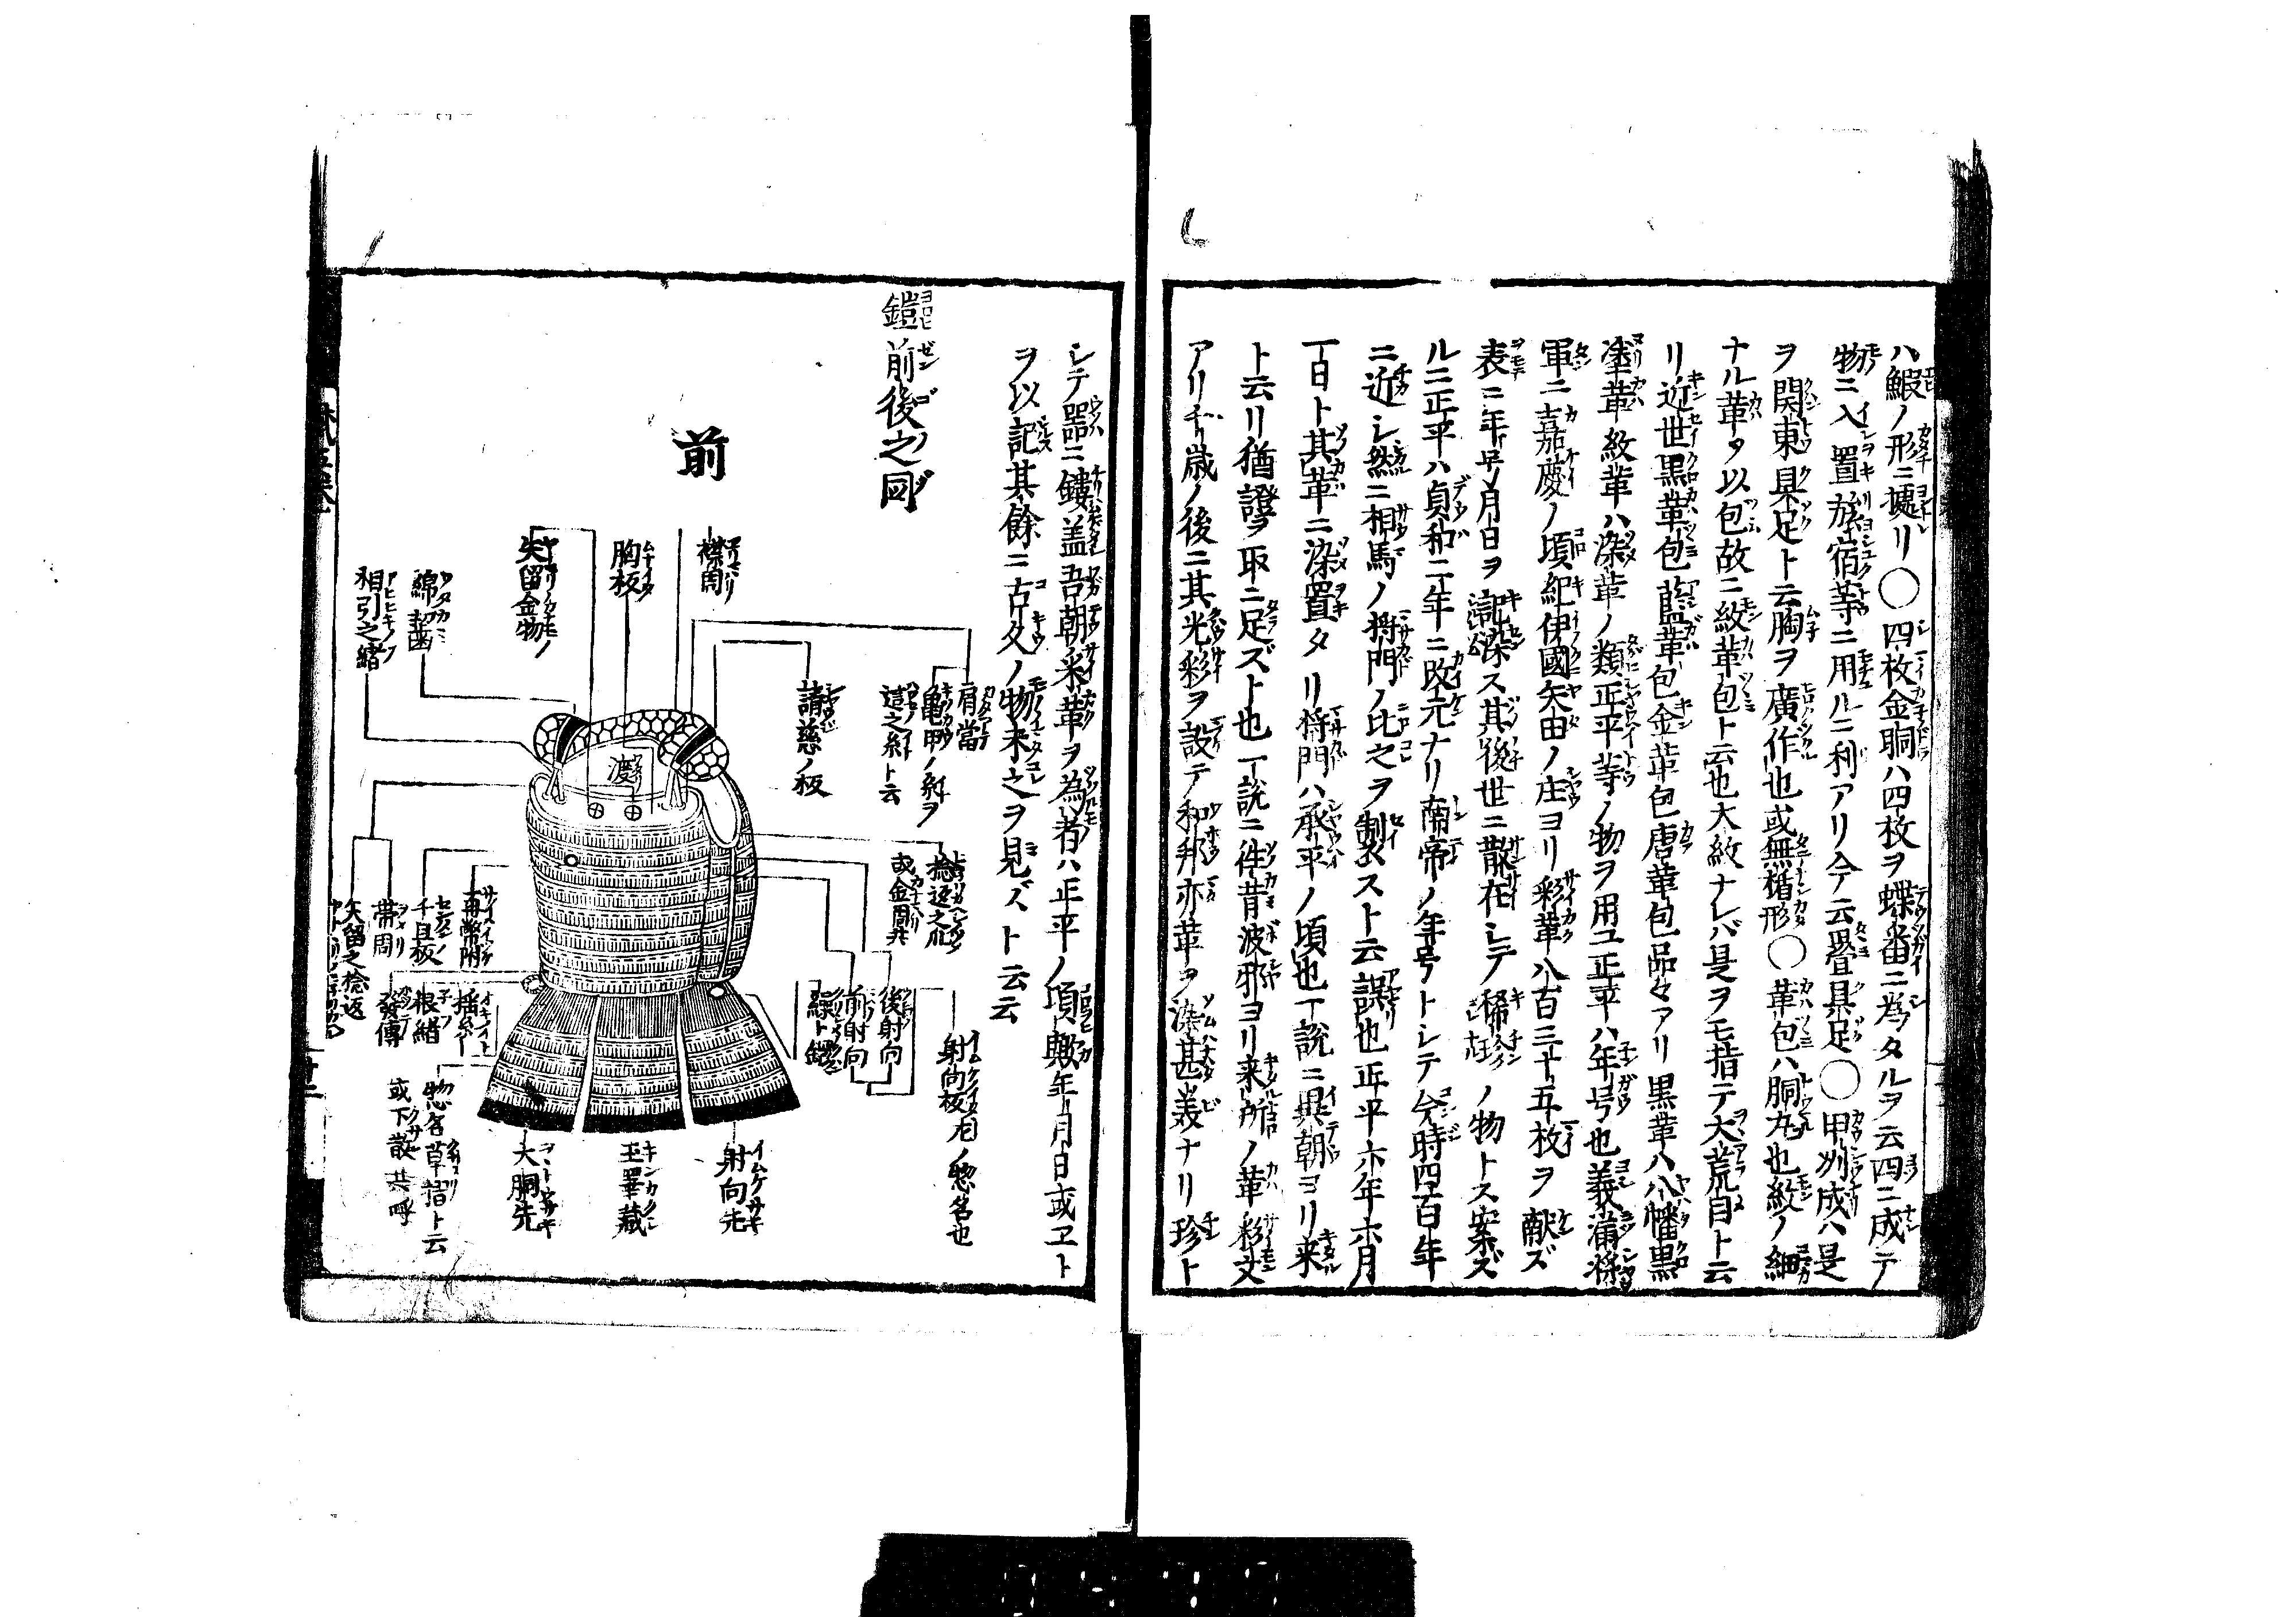 ハ鰕ノ形ニ據リ〇四枚金胴ハ四枚ヲ蝶番ニ為タルヲ云四ニ成テ
物ニ入置旅宿等ニ用ルニ利アリ今云疊具足〇甲州成ハ是
ヲ関東具足ト云胸ヲ廣作也或無楯形〇革包ハ胴丸也紋ノ細
ナル革ヲ以包故ニ紋革包ト云也大紋ナレバ是ヲモ指テ大荒目ト云
リ近世黒革包藍革包金革包唐革包品々アリ黒革ハ八幡黒
塗革紋革ハ染革ノ類正平等ノ物ヲ用ユ正平八年号也義満將
軍ニ嘉慶ノ頃紀伊國矢田ノ庄ヨリ彩革八百三十五枚ヲ献ズ
表ニ年号月日ヲ記染ス其後世ニ散在シテ稀ノ物トス案ズ
ルニ正平ハ貞和二年ニ改元ナリ南帝ノ年号トシテ今時四百年
ニ近シ然ニ相馬ノ將門ノ比之ヲ製スト云誤也正平六年六月
一日ト其革ニ染置タリ將門ハ承平ノ頃也一説ニ異朝ヨリ来
ト云リ猶證ヲ取ニ足ズト也一説ニ件昔波邪ヨリ来所ノ革彩文
アリ千歳ノ後ニ其光彩ヲ設テ和邦亦革ヲ染甚美ナリ珍ト
シテ器ニ鏤盖吾朝ノ采革ヲ為者ハ正平ノ頃歟年月日或ヱト
ヲ以記其餘ニ古久ノ物未之ヲ見ズト云云
鎧前後之圖
前
襟周
胸板
矢留金物ノ
綿齧
相引之緒
肩當
亀甲ノ射ヲ
這之糸ト云
請慈ノ板
捻返之爪
或金周共
後射向
前射向
繰ト鐙
射向板右ノ惣名也
再幣附
千旦板
帯周
矢留之捻返
揺糸
根緒
發傳
惣名草摺ト云
或下散共呼
射向先
玉睪蔵
大胴先